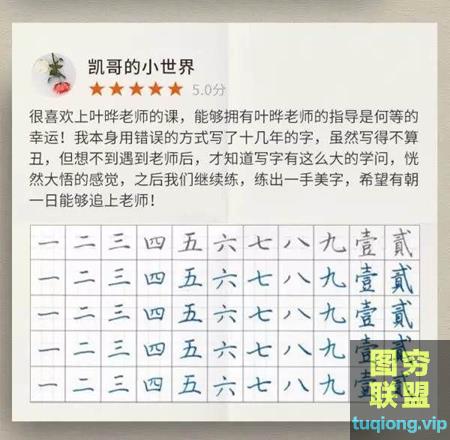 凯哥的小世界
★★★★★ 5.0分
很喜欢上叶晔老师的课，能够拥有叶晔老师的指导是何等的
幸运！我本身用错误的方式写了十几年的字，虽然写得不算
丑，但想不到遇到老师后，才知道写字有这么大的学问，恍
然大悟的感觉，之后我们继续练，练出一手美字，希望有朝
一日能够追上老师！
一 二 三 四 五 六 七 八 九 壹 貳
一 二 三 四 五 六 七 八 九 壹 貳
一 二 三 四 五 六 七 八 九 壹 貳
一 二 三 四 五 六 七 八 九 壹 貳
一 二 三 四 五 六 七 八 九 壹 貳
图穷
联盟
tuqiong.vip